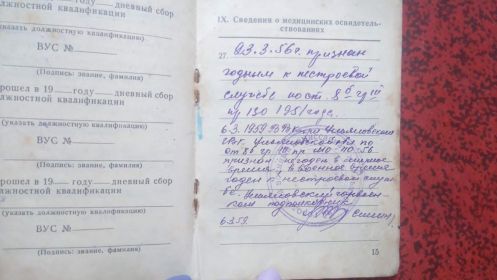 19 году дневный сбор
должностной квалификации
(указать должностную квалификацию)
ВУС №
(Подпись: звание, фамилия)
Прошел в 19 году дневный сбор
должностной квалификации
(указать должностную квалификацию)
ВУС №
(Подпись: звание, фамилия)
Прошел в 19 году дневный сбор
должностной квалификации
(указать должностную квалификацию)
ВУС №
(Подпись: звание, фамилия)
IX. Сведения о медицинских освидетель-
ствованиях
27. 23.3.56г. признан
годным к нестроевой
службе по ст. 8б гр III
пр 130 1951 года.
6.3.1959
от
признан негоден в мирное
время, в военное время
годен к нестроевой службе
подполковник
6.3.59.
15